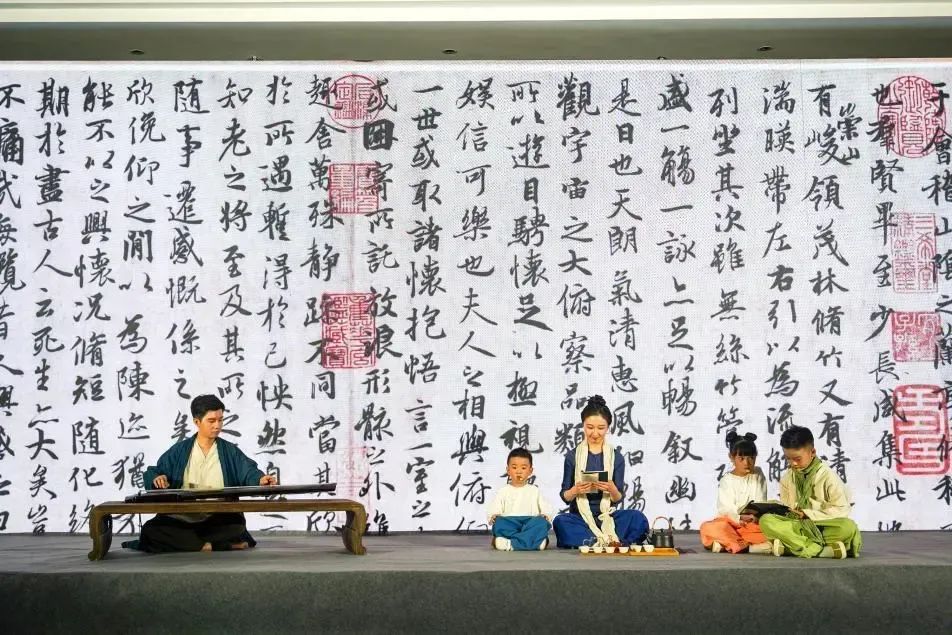 于會稽山陰之蘭
也羣賢畢至少長咸集此
有崇山峻領茂林脩竹又有清
湍暎帶左右引以為流
列坐其次雖無絲竹管
盛一觴一詠亦足以暢叙幽
是日也天朗氣清惠風和暢
觀宇宙之大俯察品類
所以遊目騁懷足以極視
娛信可樂也夫人之相與俯
一世或取諸懷抱悟言一室之
或因寄所託放浪形骸之外雖
趣舍萬殊静躁不同當其欣
於所遇暫得於己怏然自
知老之將至及其所之
隨事遷感慨係之矣
欣俛仰之閒以為陳迹猶
能不以之興懷況脩短隨化終
期於盡古人云死生亦大矣豈
不痛哉每攬昔人興感之由